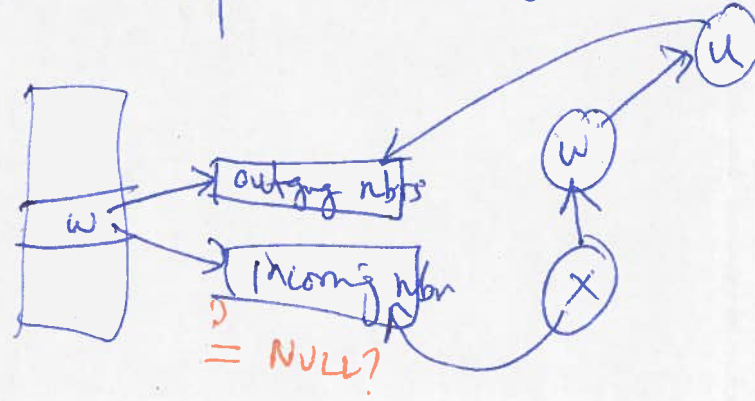 u
w
outgoing nbrs
w
incoming nbr
x
= NULL?